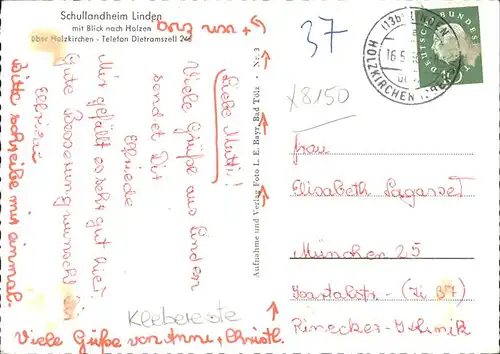 Schullandheim Linden
mit Blick nach Holzen
über Holzkirchen - Telefon Dietramszell 246
+ von
37
(13b) LINDEN
HOLZKIRCHEN
16.5.
DEUTSCHE BUNDESPOST
8150
Liebe Mutti!
Viele Grüße aus Linden
sendet Dir
Elfriede
Mir gefällt es sehr gut hier.
Gute Besserung wünscht Dir
Elfriede
Bitte schreibe mir einmal.
Viele Grüße von Anni + Christl.
Klebereste
Aufnahme und Verlag Foto L. E. Bayr, Bad Tölz · Nr. 3
Frau
Elisabeth Lagasset
München 25
Isartalstr. - (Zi 37)
Rinecker-Klinik